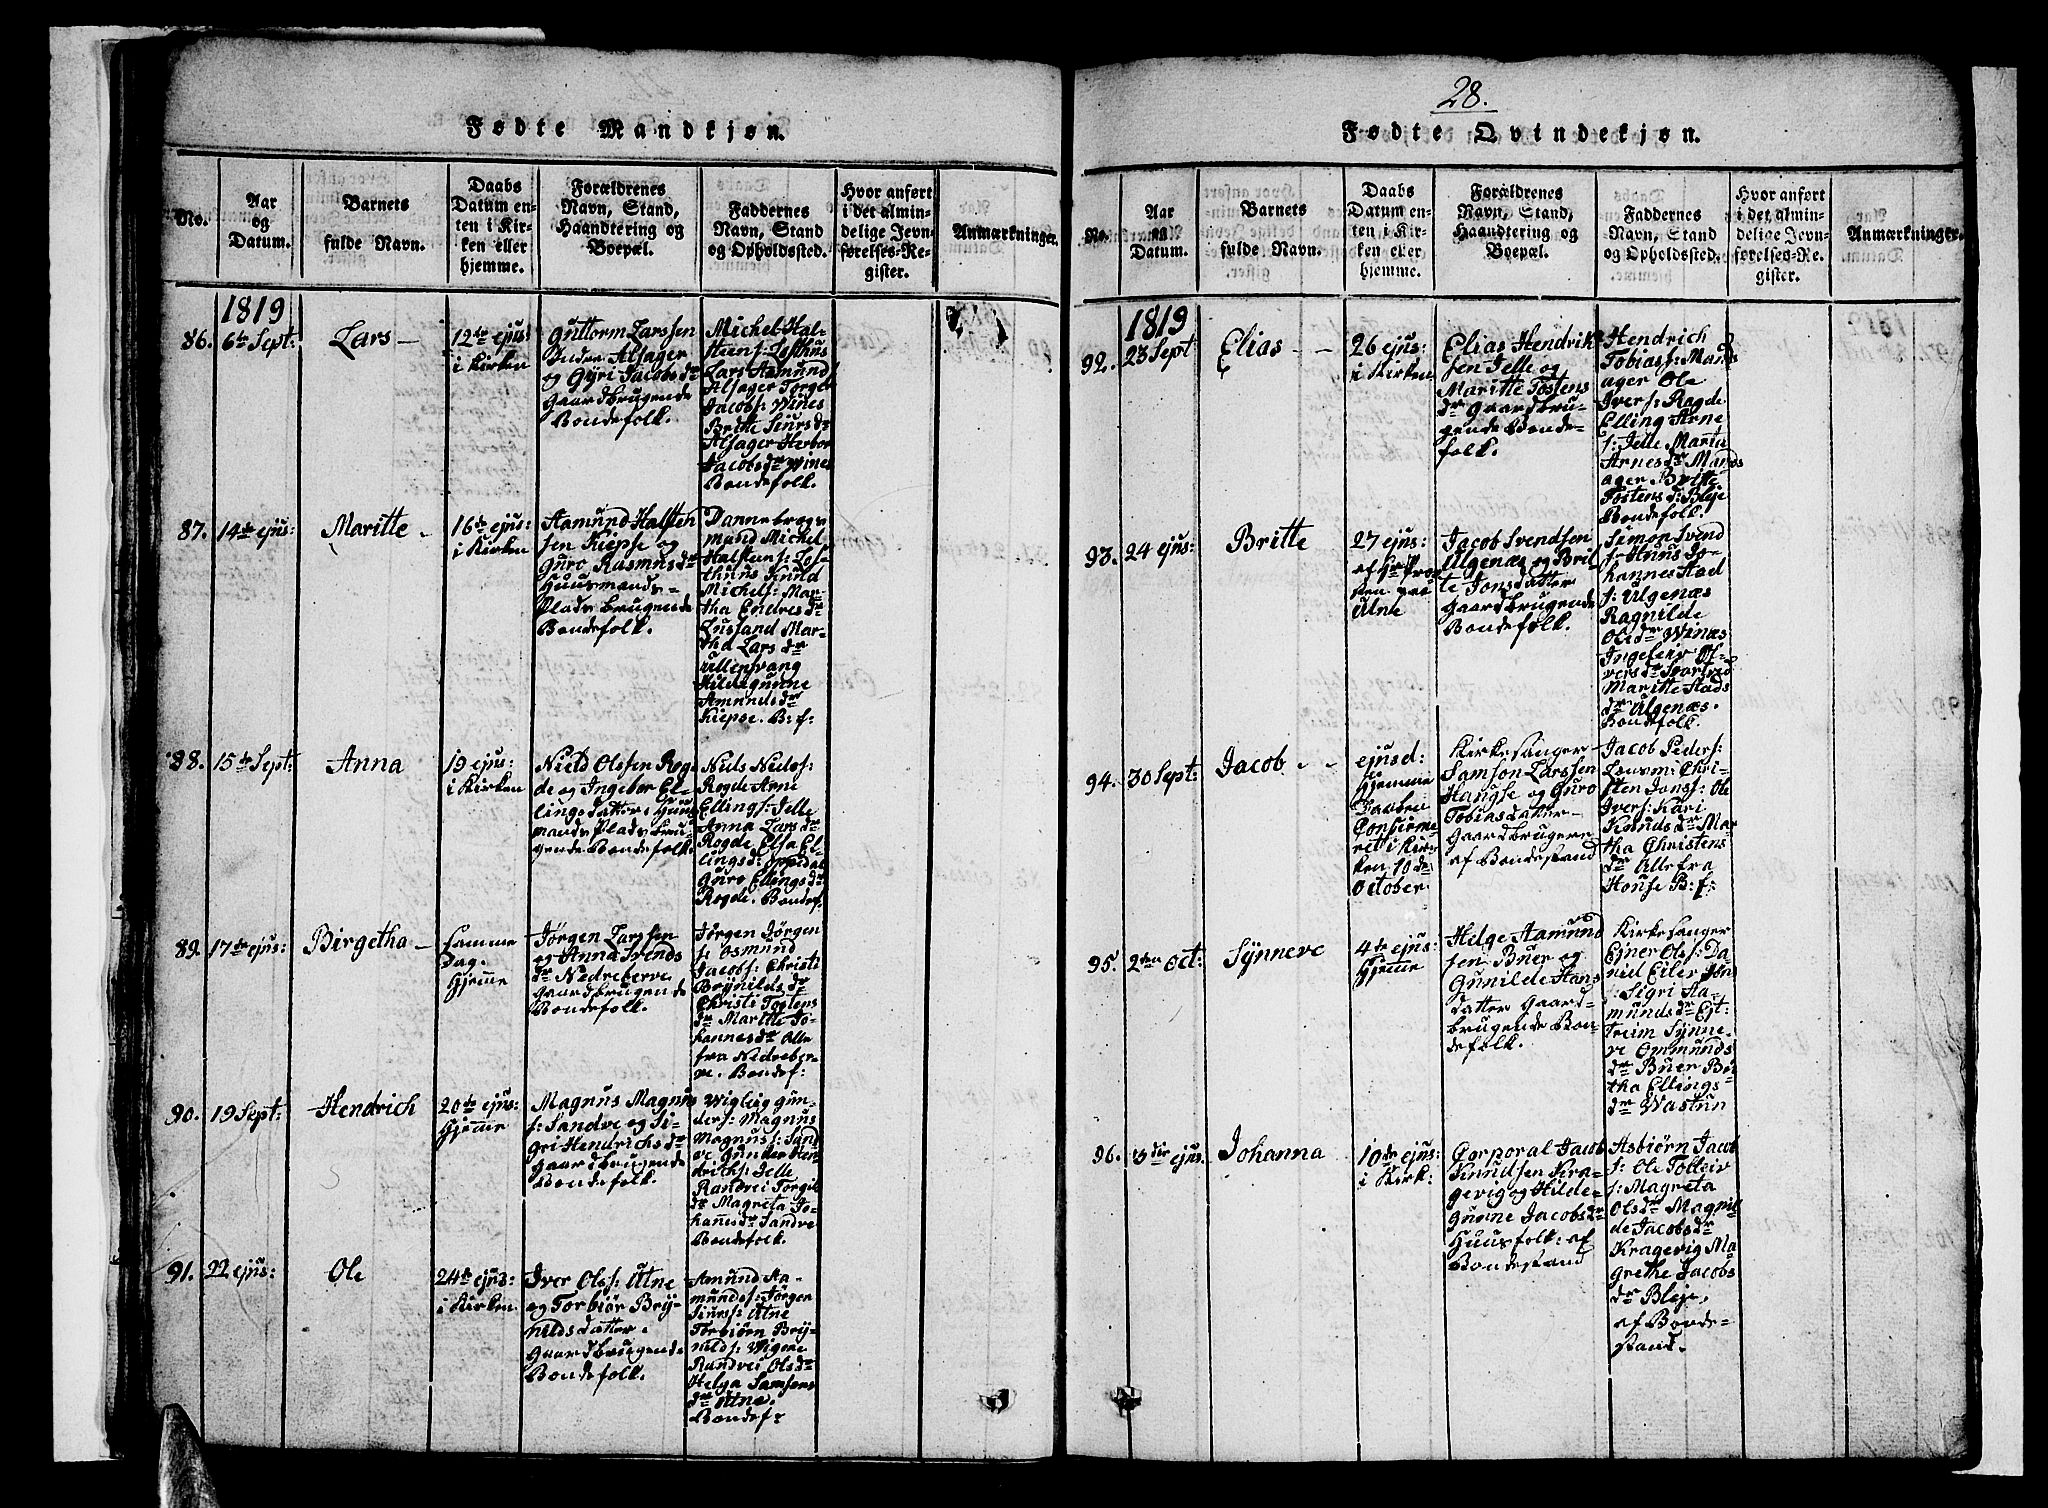 28.
Fødte Mandkjøn.
No.
Aar
og
Datum.
Barnets
fulde Navn.
Daabs
Datum en-
ten i Kir-
ken eller
hjemme.
Forældrenes
Navn, Stand,
Haandtering og
Boepæl.
Faddernes
Navn, Stand
og Opholdssted.
Hvor anført
i det almin-
delige Jevn-
førelses-Re-
gister.
Anmærkninger.
1819
86.
6te Sept:
Lars
12te ejus:
i Kirken
Guttorm Larssen
Alsager
og Gyri Jacobsdr
Gaardbrugende
Bondefolk.
Michel Hal-
steens: Lofthus
Lars Aamund
Alsager Torger
Jacobs: Wines
Britte Siursdr
Alsager Herbor
Jacobsdr Wines
Bondefolk.
87.
14de ejus:
Maritte
16de ejus:
i Kirken
Aamund Halsten
sen Kiepse og
Guro Rasmusdr
Huusmands-
Plads brugende
Bondefolk.
Dannebrogs
mand Michel
Halsteens: Lof-
thuus Knud
Michels: Mar-
tha Endresdr
Lussand Mar-
tha Larsdr
Ullensvang
Hildegunne
Amundsdr
Kiepse. B: f:
88.
15de Sept:
Anna
19 ejus:
i Kirken
Nield Olssen Rog-
de og Ingebor El-
lingsdatter Huus
mands Plads bru-
gende Bondefolk.
Niels Nields:
Rogde Arne
Ellings: Jelle
Anna Larsdr
Rogde Elsa El-
lingsd: Oppedal
Guro Ellingsdr
Rogde. Bondef.
89.
17de ejus:
Birgetha
samme
Dag.
Hjemme
Jørgen Larssen
og Anna Svends
dr Nedreberve
Gaardbrugende
Bondefolk.
Jørgen Jørgen
s: Osmund
Jacobs: Christi
Brynildsdr
Christi Tostens
dr Maritte Jo-
hannesdr Alle
fra Nedreber-
ve. Bondef:
90.
19 Sept:
Hendrich
20de ejus:
Hjemme
Magnus Magnus
s: Sandve og Si-
gri Hendrichsdr
Gaardbrugende
Bondefolk.
Wiglig Gun-
ders: Magnus
Magnus s: Sand
ve Gunder Hen
drichs: Jelle
Randvei Torgils
dr Magreta Jo-
hannesdr Sandve
Bondefolk.
91.
22 ejus:
Ole
24de ejus:
i Kirken
Iver Ols s: Utne
og Torbiør Bry-
nildsdatter.
Gaardbrugende
Bondefolk.
Amund Aa-
munds: Jørgen
Siurs s: Utne
Torbiørn Bry-
nilds:
Randvei Olsdr
Helga Samsons
dr Utne.
Bondef:
Fødte Qvindekjøn.
No.
Aar
og
Datum.
Barnets
fulde Navn.
Daabs
Datum en-
ten i Kir-
ken eller
hjemme.
Forældrenes
Navn, Stand,
Haandtering og
Boepæl.
Faddernes
Navn, Stand
og Opholdssted.
Hvor anført
i det almin-
delige Jevn-
førelses-Re-
gister.
Anmærkninger.
1819
92.
23 Sept
Elias
26 ejus:
i Kirken
Elias Hendrik
sen Jelle og
Maritte Tostens
dr Gaardbru-
gende Bonde-
folk.
Hendrich
Tobias s: Mands
ager Ole
Ivers: Rogde
Elling Arne
s: Jelle Maritte
Arnesdr Mands
ager Britte
Tostensd: Bleje
Bondefolk.
93.
24 ejus:
Britte
27 ejus:
af Hr Pro-
Utne
Jacob Svendsen
Ulgenæs og Brit-
te Jonsdatter
Gaardbrugende
Bondefolk.
Simon Svend
s: Huus Jo-
hannes Stad
s: Ulgenæs
Ragnilde
Olsdr Winæs
Ingeleiv
Maritte Stads
dr Ulgenæs.
Bondefolk.
94.
30 Sept:
Jacob
ejusd:
Hjemme
Daaben
Confirme-
ret i Kir-
ken 10de
October
Kirkesanger
Samson Larssen
Haugse og Guro
Tobiasdatter
Gaardbrugere
af Bondestand
Jacob Peders:
Chri-
sten Jons s: Ole
Ivers: Kari
Knudsdr Mar-
tha Christens
dr Alle fra
House B: f:
95.
2den Oct:
Synneve
4de ejus:
Hjemme
Helge Aamund
sen Buer og
Gunilde Hans
datter Gaard-
brugende Bon-
defolk.
Kirkesanger
Ejner Ols s: Da-
niel Eiler
Sigri Aa-
mundsdr Ejt-
treim Synne-
ve Ommunds
dr Buer Bri
tha Ellings-
dr Wastun
96.
3die ejus.
Johanna
10de ejus:
i Kirk:
Corporal Jacob
Knudsen Kra-
gevig og Hilde-
gunne Jacobsdr
Huusfolk: af
Bondestand
Asbiørn Jacob
s: Ole Tolleiv
s: Magreta
Olsdr Magnil
de Jacobsdr
Kragevig Ma-
grethe Jacobs
dr Bleje,
af Bonde-
stand.